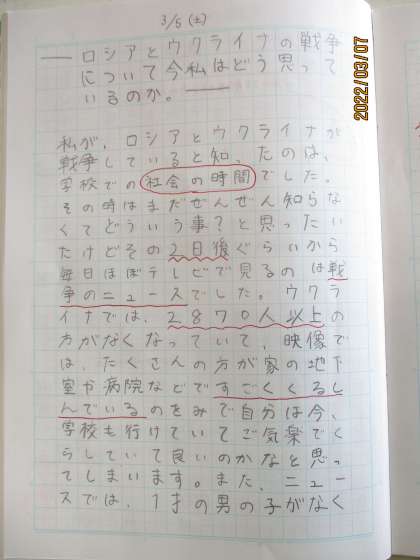 3/5(土)
── ロシアとウクライナの戦争
について今私はどう思って
いるのか。──
私が、ロシアとウクライナが
戦争していると知ったのは、
学校での社会の時間でした。
その時はまだぜんぜん知らな
くてどういう事?と思ったい
たけどその2日後ぐらいから
毎日ほぼテレビで見るのは戦
争のニュースでした。ウクラ
イナでは、2870人以上の
方がなくなっていて、映像で
は、たくさんの方が家の地下
室や病院などですごくくるし
んでいるのをみて自分は今、
学校も行けていてご気楽でく
らしていて良いのかなと思っ
てしまいます。また、ニュー
スでは、1才の男の子がなく
2022/03/07